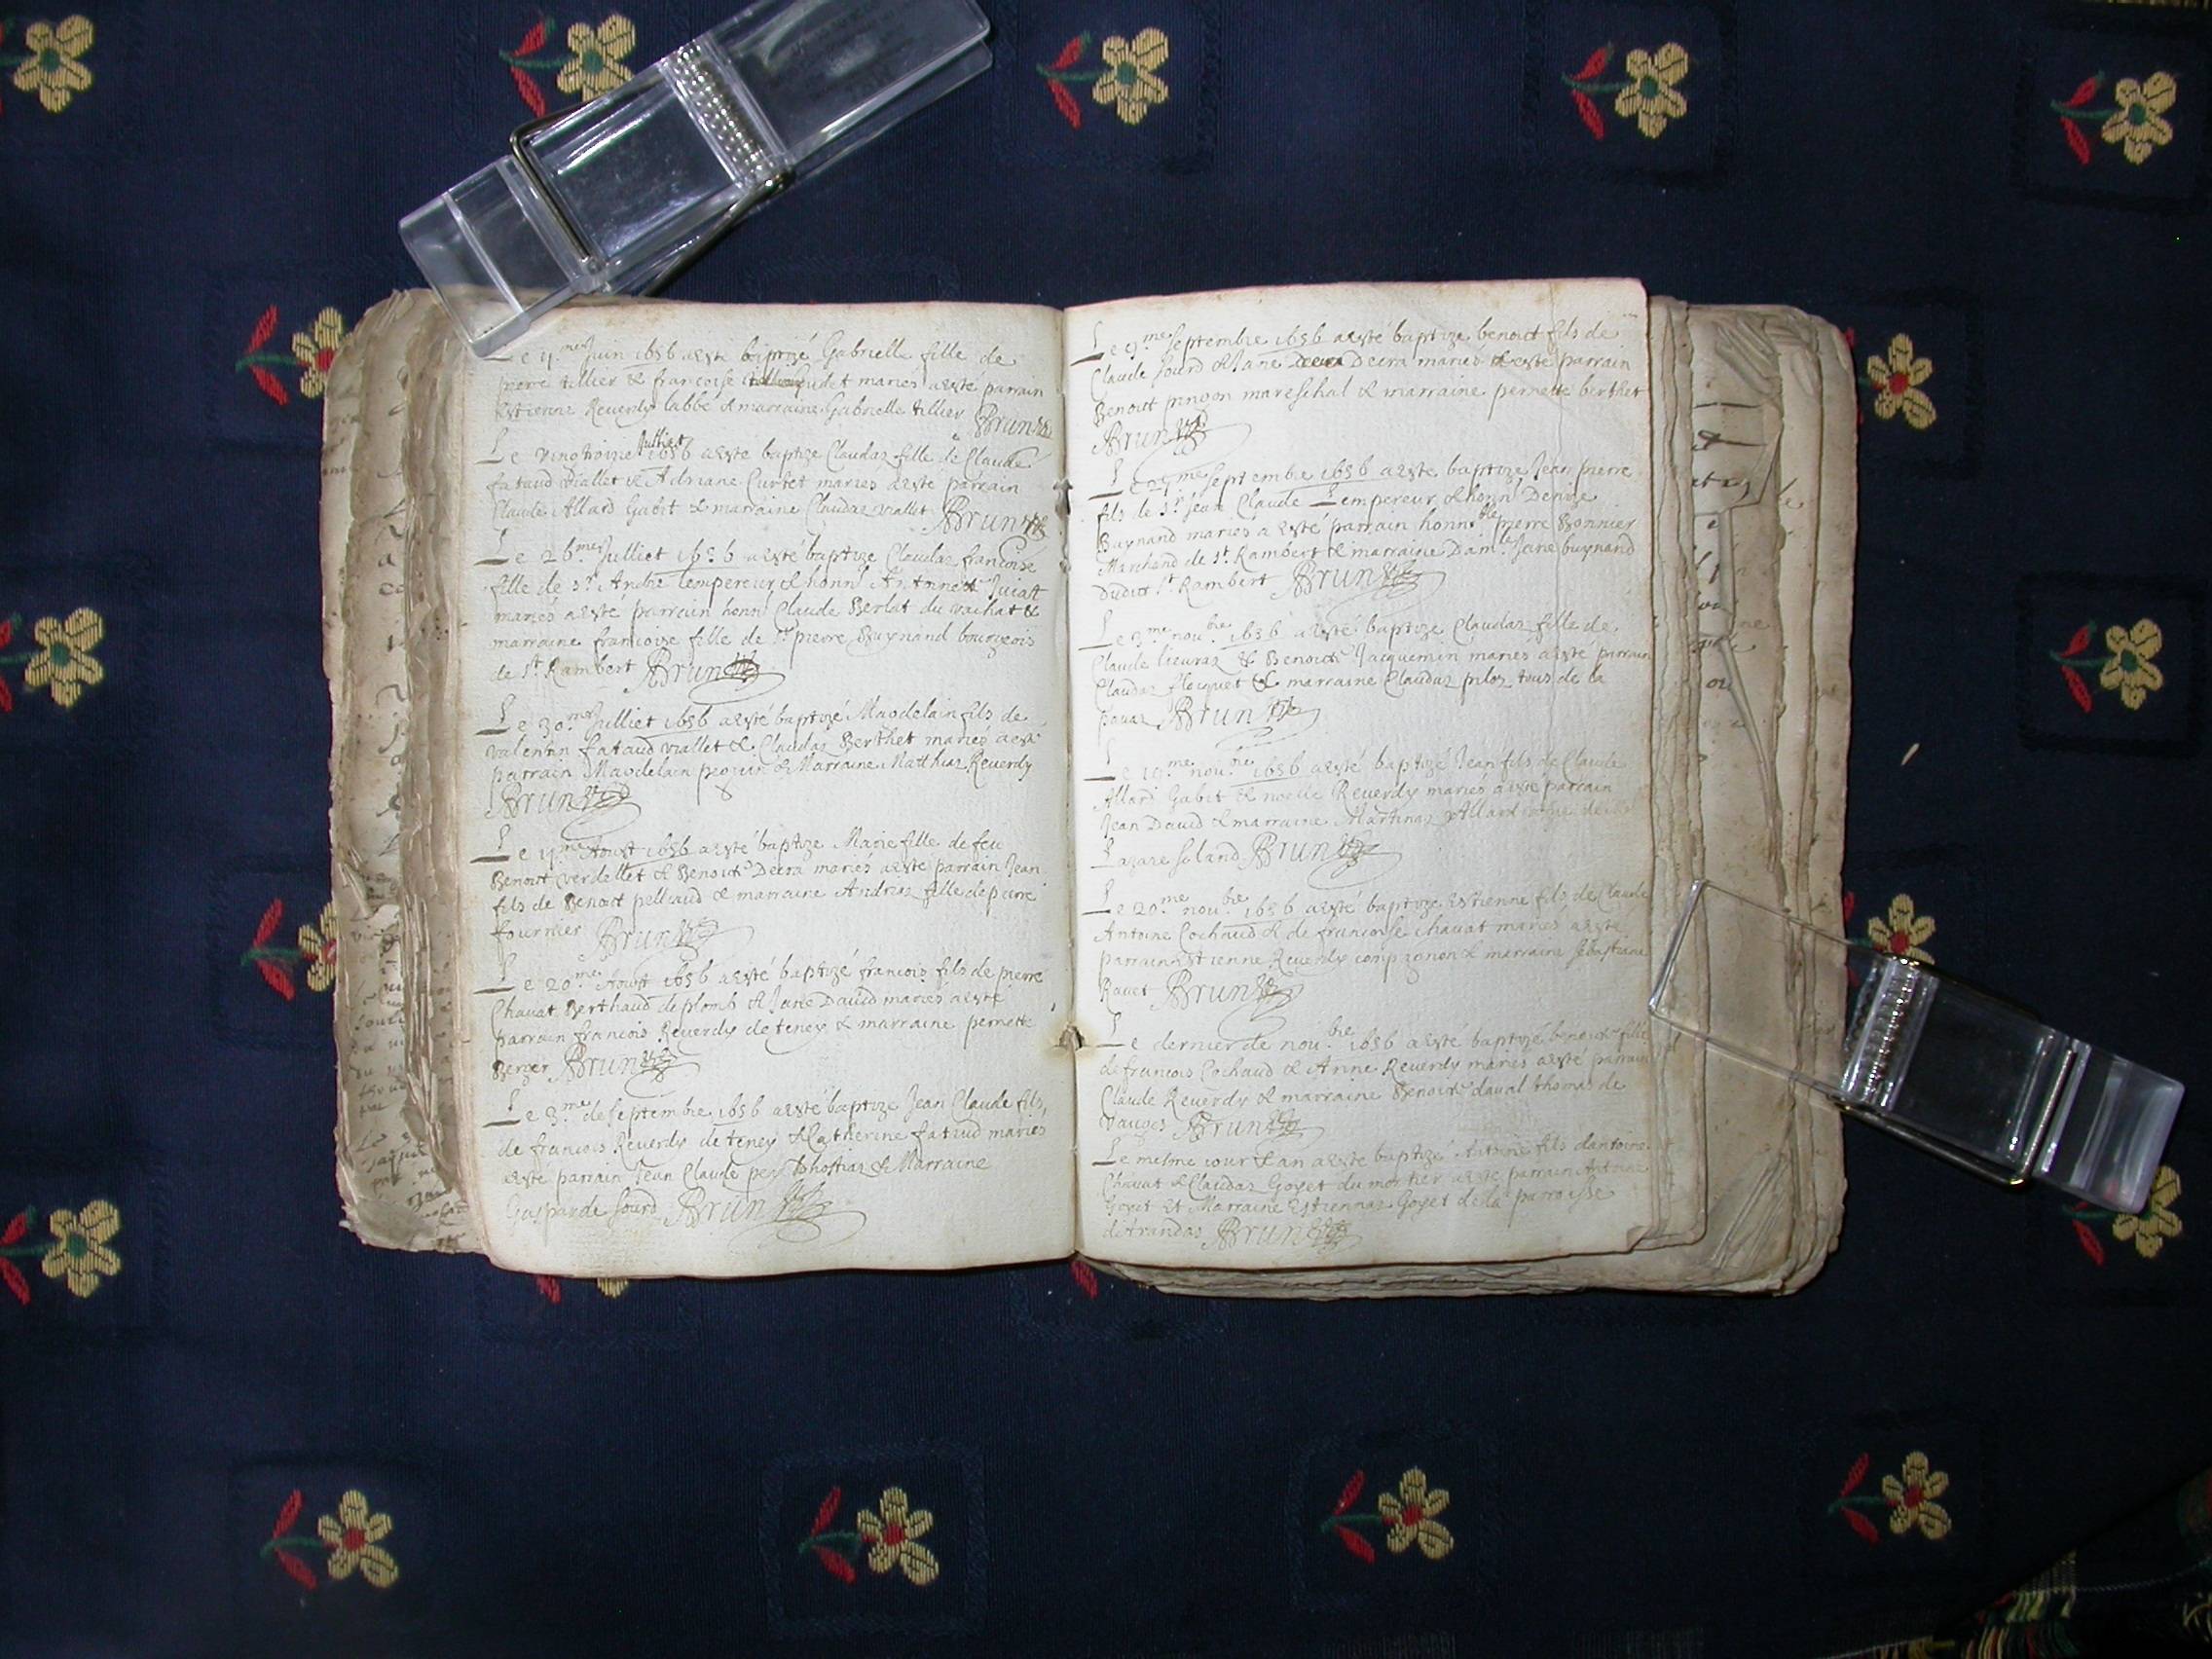 Le 11.me Juin 1656 a esté baptizé Gabrielle fille de
pierre tillier & francoise mariés a esté parrain
Estienne Reuerdy labbé & marraine Gabrielle tillier Brun
Le vingtroize Julliet 1656 a esté baptizé Claudaz fille de Claude
fataud viallet & Adriane Curtet mariés a esté parrain
Claude Allard Gabit & marraine Claudaz viallet Brun
Le 26.me Julliet 1656 a esté baptize Claudaz francoise
fille de Sr. André Lempereur & honn. Antoinette Juiat
mariés a esté parrain honn. Claude Berlat du vachat &
marraine francoise fille de Sr. pierre Buynand bourgeois
de St. Rambert Brun
Le 30.me Julliet 1656 a esté baptizé Magdelain fils de
valentin fataud viallet & Claudaz Berthet mariés a esté
parrain Magdelain peguin & Marraine Matthiaz Reuerdy
Brun
Le 11.me Aoust 1656 a esté baptize Marie fille de feu
Benoit verdellet & Benoicte Decra mariés a esté parrain Jean
fils de Benoit pelliaud & marraine Andriaz fille de pierre
fournier Brun
Le 20.me Aoust 1656 a esté baptizé francois fils de pierre
Chauat Berthaud de plomb & Jane Dauid mariés a esté
parrain francois Reuerdy de teney & marraine pernette
Berger Brun
Le 3.me de septembre 1656 a esté baptize Jean Claude fils
de francois Reuerdy de teney & Catherine fataud mariés
a esté parrain Jean Claude & Marraine
Gasparde Sourd Brun
Le 9.me septembre 1656 a esté baptize benoict fils de
Claude Sourd & Jane Decra mariés & a esté parrain
Benoict pingon mareschal & marraine pernette berthet
Brun
Le 25.me septembre 1656 a esté baptize Jean pierre
fils de Sr. Jean Claude Lempereur & honn. Denize
Buynand mariés a esté parrain honnble pierre Bonnier
Marchand de St. Rambert & marraine Damlle Jane buynand
dudit St. Rambert Brun
Le 3.me noubre 1656 a esté baptize Claudaz fille de
Claude lieuraz & Benoicte Jacquemin mariés a esté parrain
Claudaz flocquet & marraine Claudaz piloz tous de la
Brun
Le 19.me noubre 1656 a esté baptizé Jean fils de Claude
Allard Gabit & noelle Reuerdy mariés a esté parrain
Jean Dauid & marraine Martinaz Allard
Lazare Soland Brun
Le 20.me noubre 1656 a esté baptize Estienne fils de Claude
Antoine Cochaud & de francoise chauat mariés a esté
parrain Estienne Reuerdy compagnon & marraine Sebastiane
Rauet Brun
Le dernier de noubre 1656 a esté baptizé benoicte fille
de francois Cochaud & Anne Reuerdy mariés a esté parrain
Claude Reuerdy & marraine Benoicte daual thomas de
vauges Brun
Le mesme iour & an a esté baptizé Antoine fils dantoine
Chauat & Claudaz Goyet du mortier a esté parrain Antoine
Goyet Et Marraine Estiennaz Goyet de la parroisse
darandas Brun